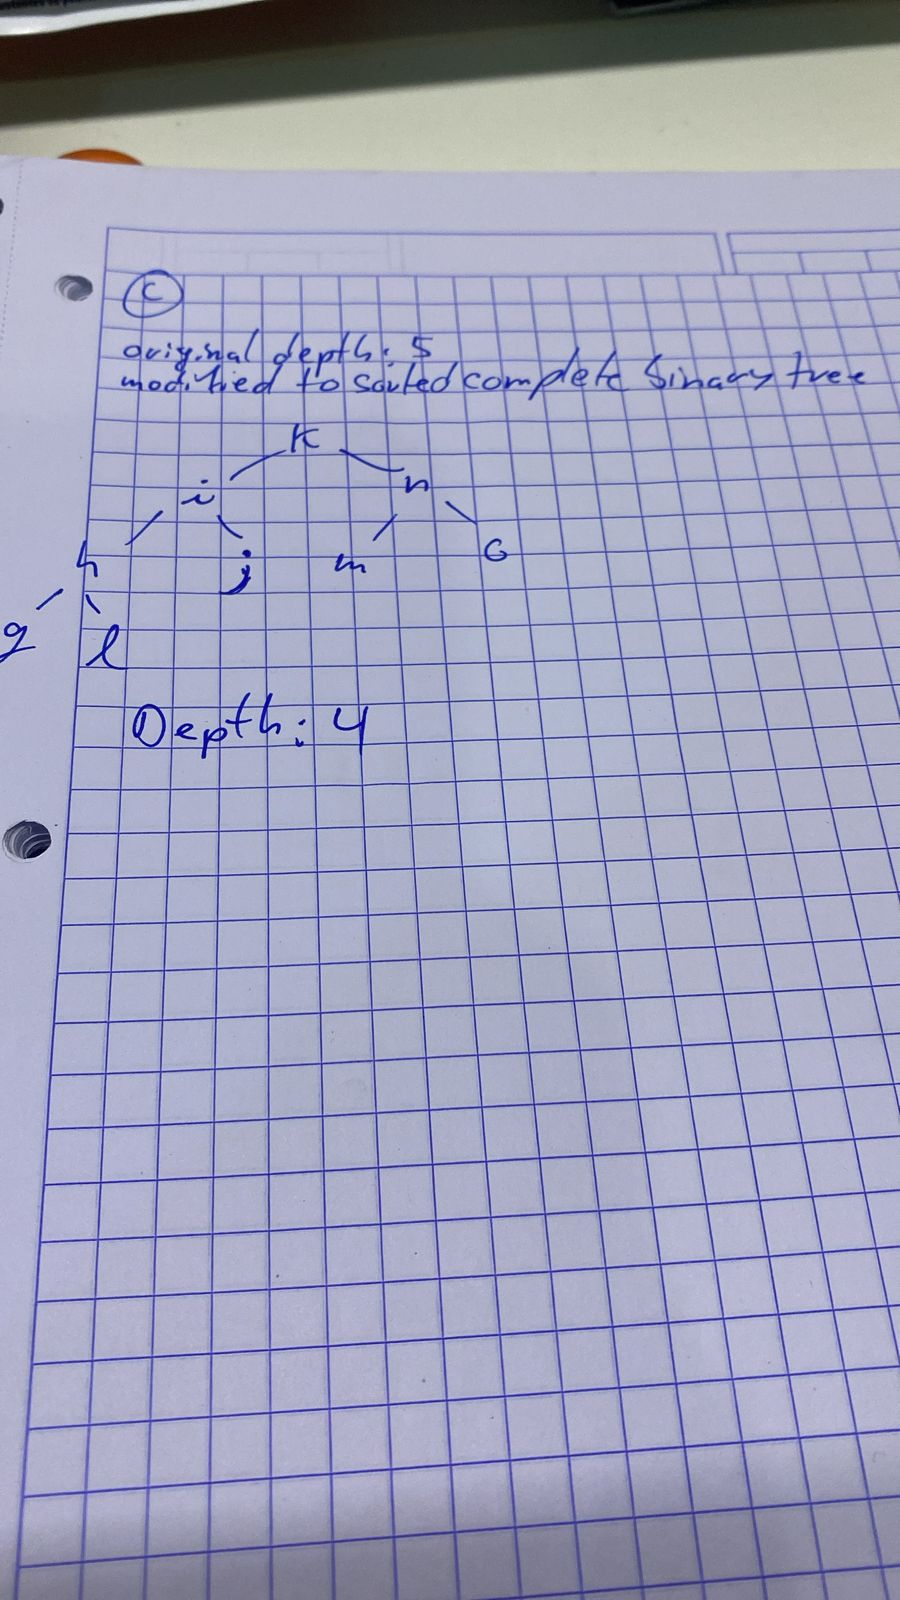 C
original depth: 5
modified to sorted complete binary tree
K
i n
h j m o
g l
Depth: 4